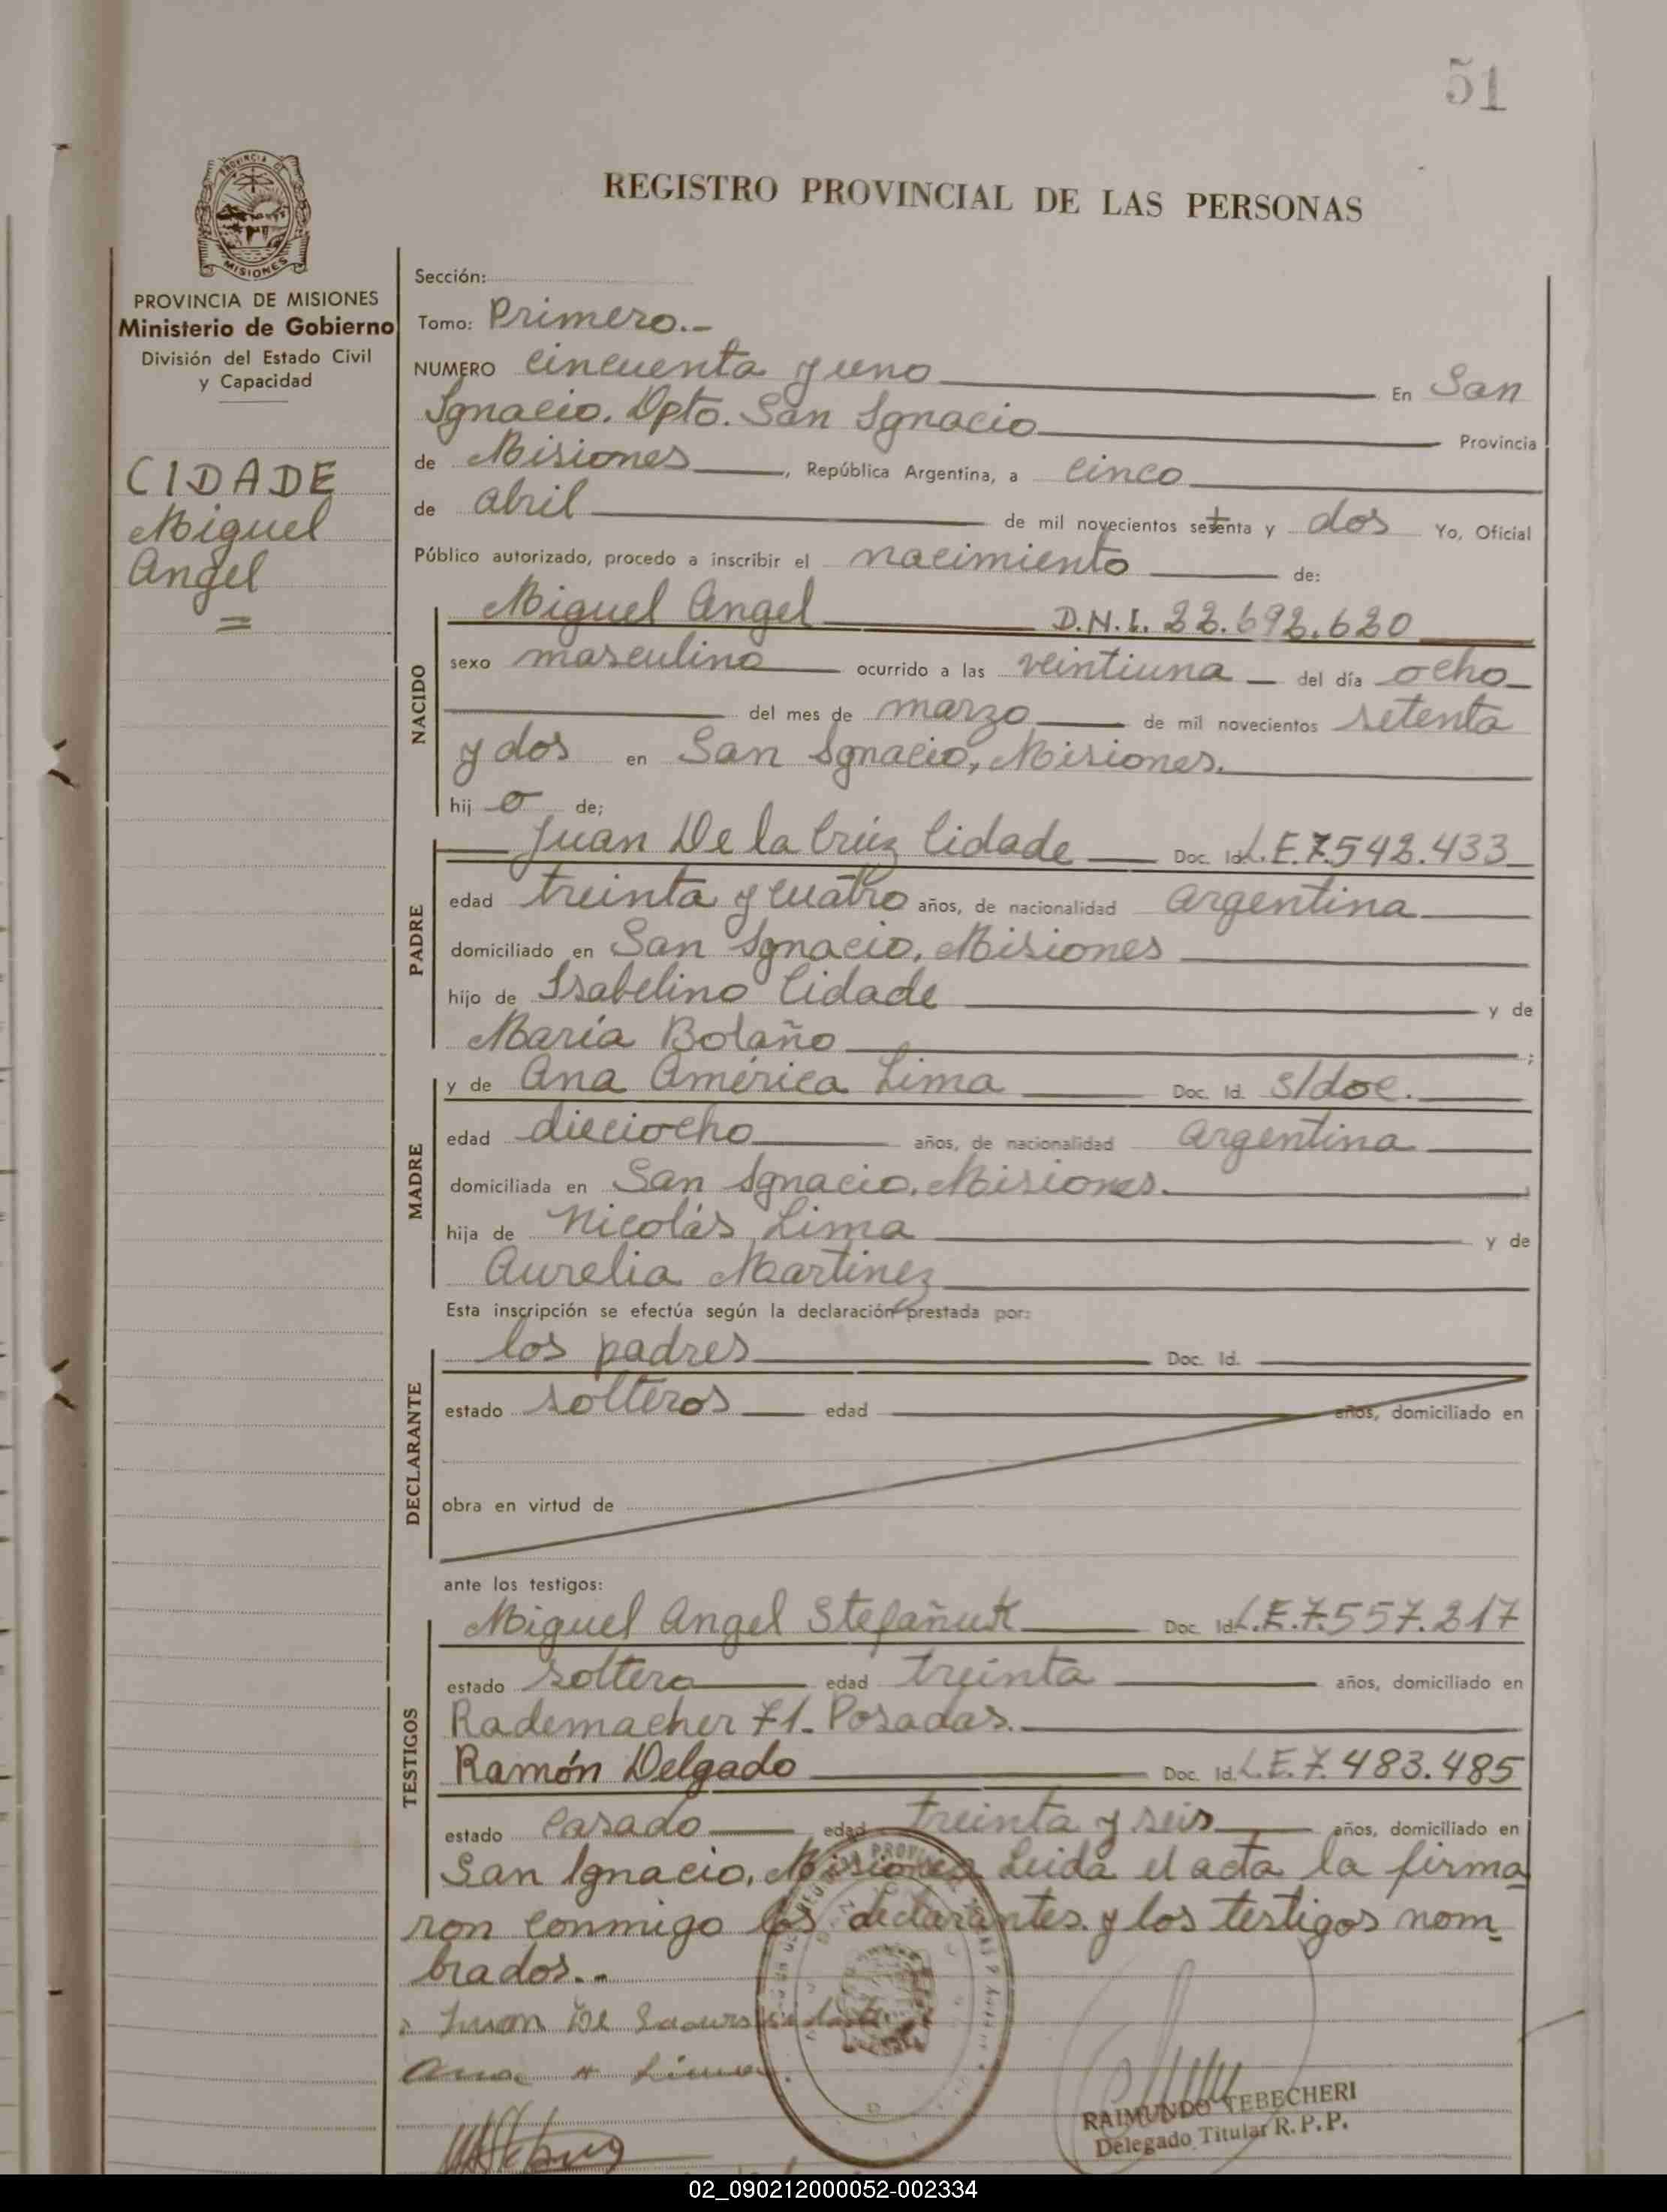 51
REGISTRO PROVINCIAL DE LAS PERSONAS
PROVINCIA DE
MISIONES
PROVINCIA DE MISIONES
Ministerio de Gobierno
División del Estado Civil
y Capacidad
CIDADE
Miguel
Angel
=
Sección:
Tomo: Primero.-
NUMERO cincuenta y uno En San
Ignacio. Dpto. San Ignacio Provincia
de Misiones, República Argentina, a cinco
de abril de mil novecientos setenta y dos Yo, Oficial
Público autorizado, procedo a inscribir el nacimiento de:
NACIDO
Miguel Angel D.N.I. 22.692.620
sexo masculino ocurrido a las veintiuna del día ocho
del mes de marzo de mil novecientos setenta
y dos en San Ignacio, Misiones.
hij o de;
PADRE
Juan De la Crúz Cidade Doc. Id. L.E.7.542.433
edad treinta y cuatro años, de nacionalidad argentina
domiciliado en San Ignacio, Misiones
hijo de Isabelino Cidade y de
María Bolaño ;
MADRE
y de Ana América Lima Doc. Id. s/doc.
edad dieciocho años, de nacionalidad argentina
domiciliada en San Ignacio, Misiones.
hija de Nicolás Lima y de
Aurelia Martinez
Esta inscripción se efectúa según la declaración prestada por:
DECLARANTE
los padres Doc. Id.
estado solteros edad años, domiciliado en
obra en virtud de
ante los testigos:
TESTIGOS
Miguel Angel Stefañuk Doc. Id. L.E.7.557.217
estado soltero edad treinta años, domiciliado en
Rademacher 71. Posadas.
Ramón Delgado Doc. Id. L.E.7.483.485
estado casado edad treinta y seis años, domiciliado en
San Ignacio, Misiones Leida el acta la firma
ron conmigo los declarantes y los testigos nom
brados.-
Juan De
Ana Lima
RAIMUNDO TEBECHERI
Delegado Titular R.P.P.
02_090212000052-002334